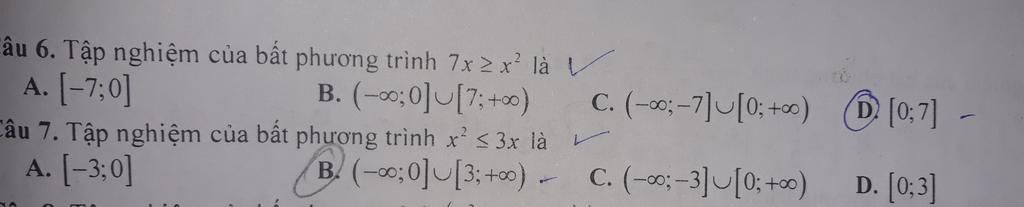 âu 6. Tập nghiệm của bất phương trình 7x ≥ x² là
A. [−7;0] B. (−∞;0]∪[7;+∞) C. (−∞;−7]∪[0;+∞) D. [0;7]
Câu 7. Tập nghiệm của bất phương trình x² ≤ 3x là
A. [−3;0] B. (−∞;0]∪[3;+∞) C. (−∞;−3]∪[0;+∞) D. [0;3]